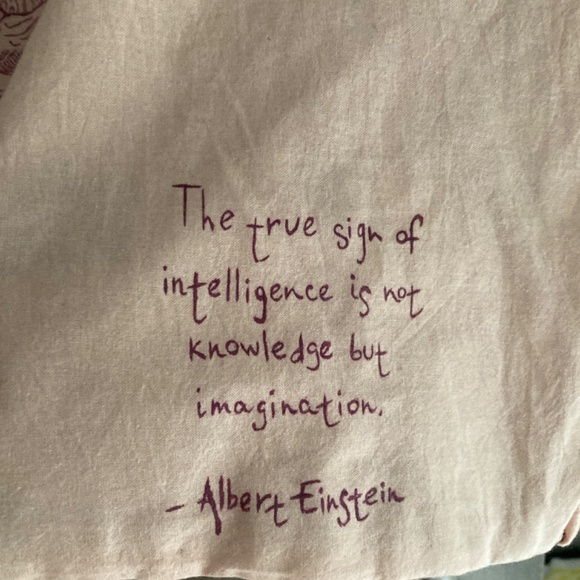 The true sign of
intelligence is not
knowledge but
imagination.
- Albert Einstein